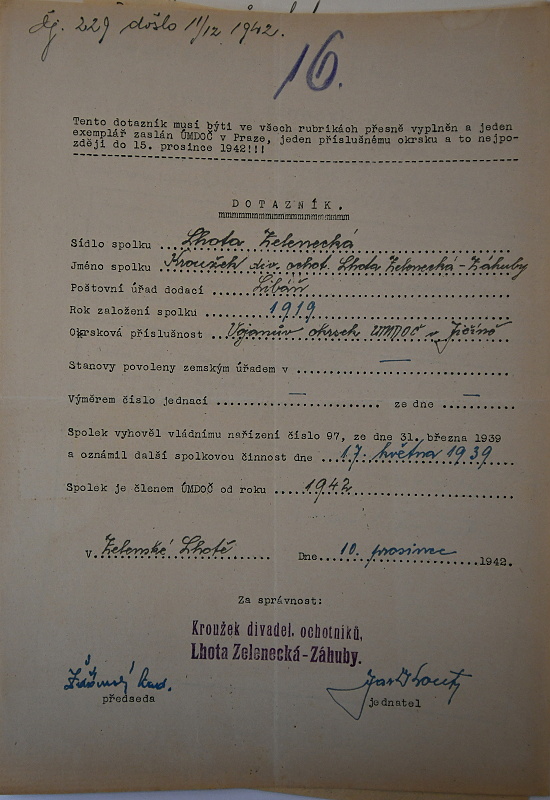 čj. 229 došlo 11/12 1942.
16.
Tento dotazník musí býti ve všech rubrikách přesně vyplněn a jeden
exemplář zaslán ÚMDOČ v Praze, jeden příslušnému okrsku a to nejpo-
zději do 15. prosince 1942!!!
DOTAZNÍK.
Sídlo spolku Lhota Zelenecká
Jméno spolku Kroužek div. ochot. Lhota Zelenecká-Záhuby
Poštovní úřad dodací Libáň
Rok založení spolku 1919
Okrsková příslušnost okrsek ÚMDOČ v Jičíně
Stanovy povoleny zemským úřadem v —
Výměrem číslo jednací — ze dne —
Spolek vyhověl vládnímu nařízení číslo 97, ze dne 31. března 1939
a oznámil další spolkovou činnost dne 17. května 1939
Spolek je členem ÚMDOČ od roku 1942
V Zelenské Lhotě Dne 10. prosince 1942.
Za správnost:
Kroužek divadel. ochotníků,
Lhota Zelenecká-Záhuby.
předseda jednatel